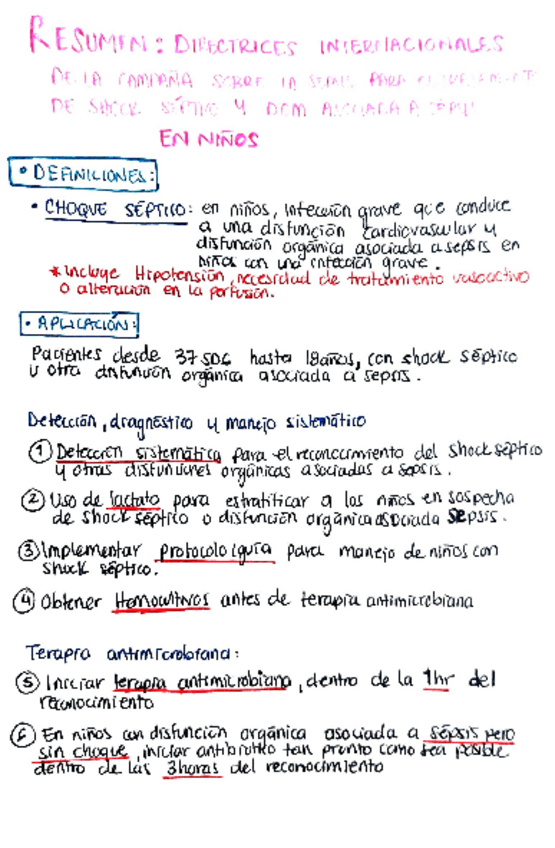 RESUMEN: DIRECTRICES INTERNACIONALES
DE LA CAMPAÑA SOBRE LA SEPSIS PARA EL TRATAMIENTO
DE SHOCK SÉPTICO Y DOM ASOCIADA A SEPSIS
EN NIÑOS
• DEFINICIONES:
• CHOQUE SÉPTICO: en niños, infección grave que conduce
a una disfunción cardiovascular y
disfunción orgánica asociada a sepsis en
niños con una infección grave.
* Incluye Hipotensión, necesidad de tratamiento vasoactivo
o alteración en la perfusión.
• APLICACIÓN:
Pacientes desde 37 SDG hasta 18años, con shock séptico
u otra disfunción orgánica asociada a sepsis.
Detección, diagnóstico y manejo sistemático
① Detección sistemática para el reconocimiento del shock séptico
y otras disfunciones orgánicas asociadas a sepsis.
② Uso de lactato para estratificar a los niños en sospecha
de shock séptico o disfunción orgánica asociada sepsis.
③ Implementar protocolo/guía para manejo de niños con
shock séptico.
④ Obtener Hemocultivos antes de terapia antimicrobiana
Terapia antimicrobiana:
⑤ Iniciar terapia antimicrobiana, dentro de la 1hr del
reconocimiento
⑥ En niños con disfunción orgánica asociada a sépsis pero
sin choque, iniciar antibiotico tan pronto como sea posible
dentro de las 3horas del reconocimiento